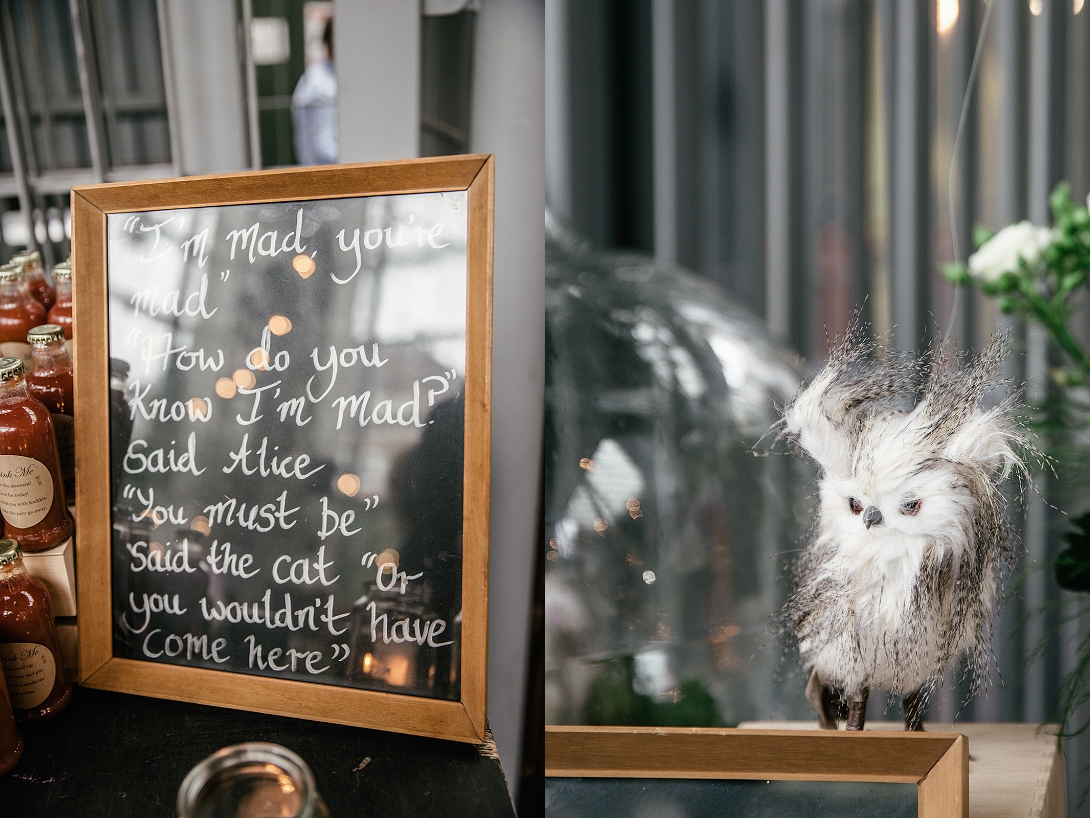 "I'm mad, you're
mad"
"How do you
Know I'm mad?"
Said Alice
"You must be"
Said the cat "Or
you wouldn't have
come here"
Me
Me